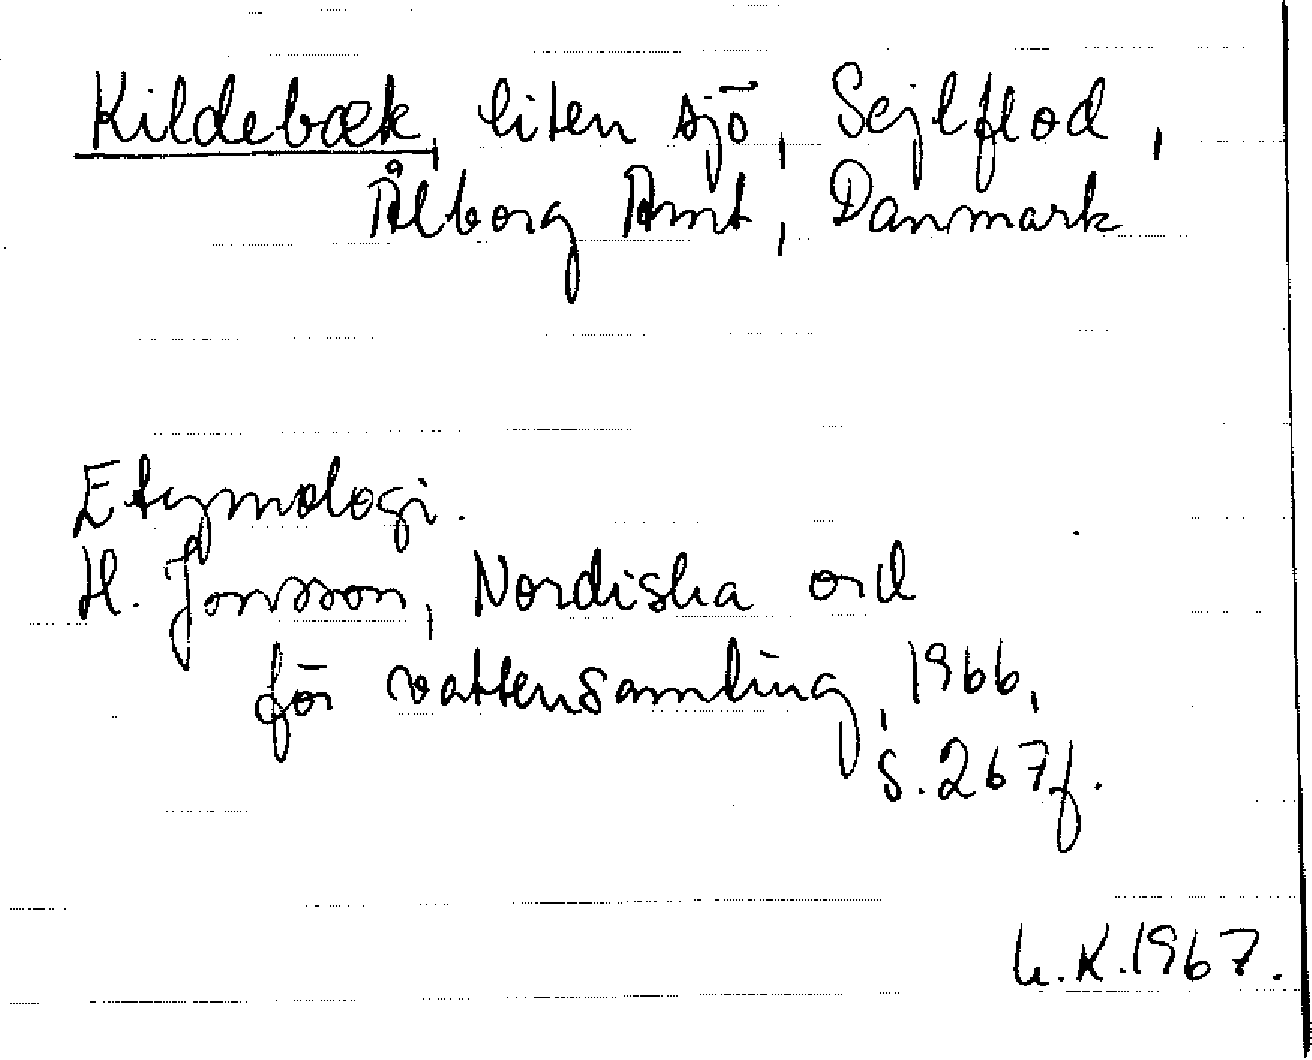 Kildebæk, liten sjö, Sejlflod,
Ålborg Amt, Danmark
Etymologi.
H. Jonsson, Nordiska ord
för vattensamling, 1966,
s. 267f.
L.K.1967.